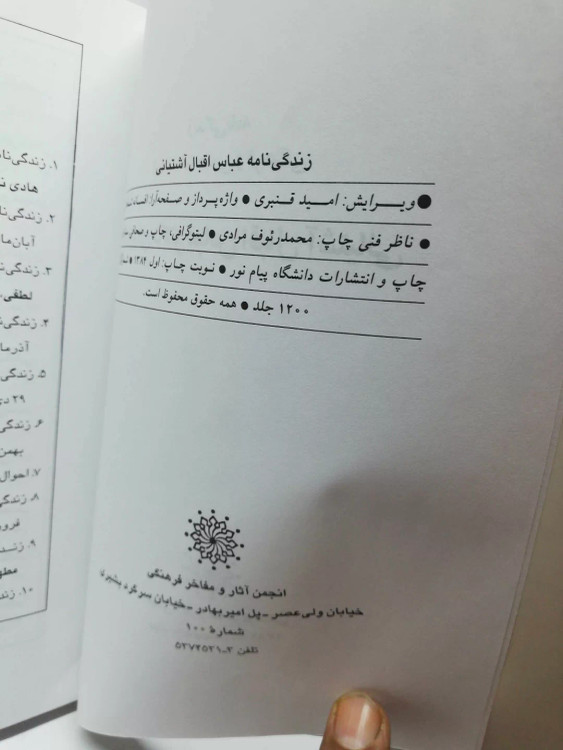 زندگی‌نامه عباس اقبال آشتیانی
● ویـرایش: امـید قـنبری ● واژه‌پرداز و صفحه‌آرا:
● ناظر فنی چاپ: محمدرئوف مرادی ● لیتوگرافی، چاپ و صحافی
چاپ و انتشارات دانشگاه پیام نور ● نوبت چاپ: اول ۱۳۸۴ ●
۱۲۰۰ جلد ● همه حقوق محفوظ است.
انجمن آثار و مفاخر فرهنگی
خیابان ولی‌عصر ـ پل امیربهادر ـ خیابان سرگرد بشیری
شماره ۱۰۰
تلفن ۳ـ۵۳۷۴۵۳۱
۱. زندگی‌نا
هادی
۲. زندگی‌نا
آبان‌ما
۳. زندگی‌
لطفی
۴. زندگی‌نا
آذرما
۵. زندگی
۲۹ د
۶. زندگی
بهمن
۷. احوال
۸. زندگی
فرور
۹. زنـد
مطه
۱۰. زند